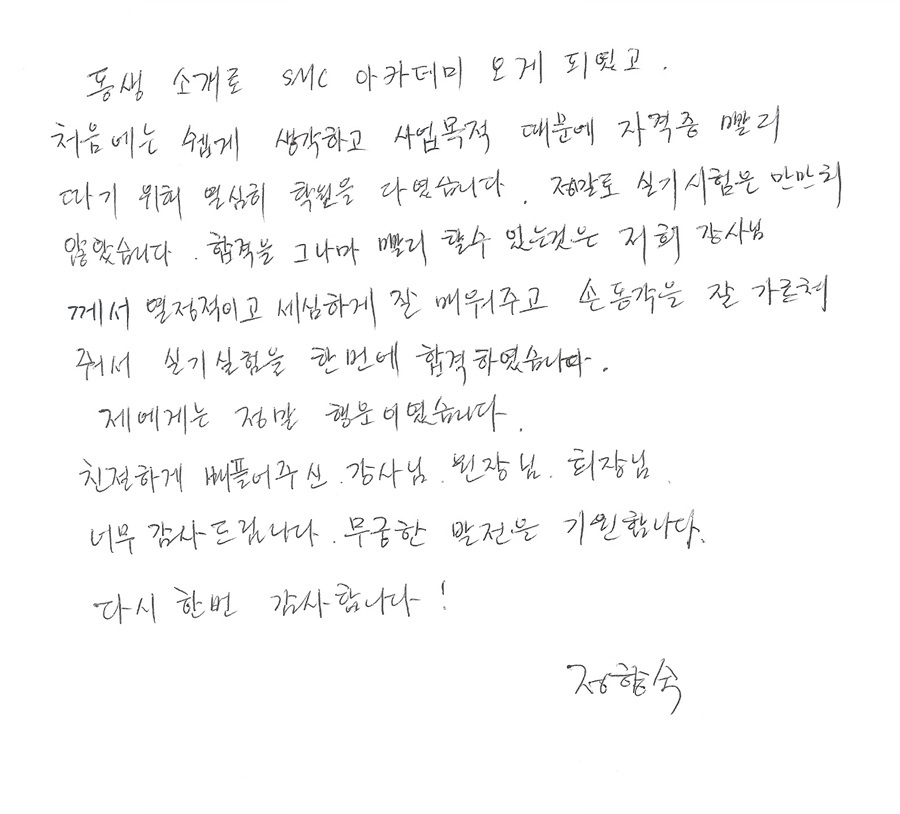 동생 소개로 SMC 아카데미 오게 되였고.
처음에는 쉡게 생각하고 사업목적 때문에 자격증 빨리
따기 위희 열심히 학원을 다였습니다. 정말로 실기시험은 만만치
않았습니다. 합격을 그나마 빨리 할수 있는것은 저희 강사님
께서 열정적이고 세심하게 잘 배워주고 손동작을 잘 가르쳐
줘서 실기실험을 한번에 합격하였습니다.
제에게는 정말 행운이였습니다.
친절하게 베플어주신. 강사님. 원장님. 회장님.
너무 감사드립니다. 무궁한 발전을 기원합니다.
다시 한번 감사합니다!
정향숙